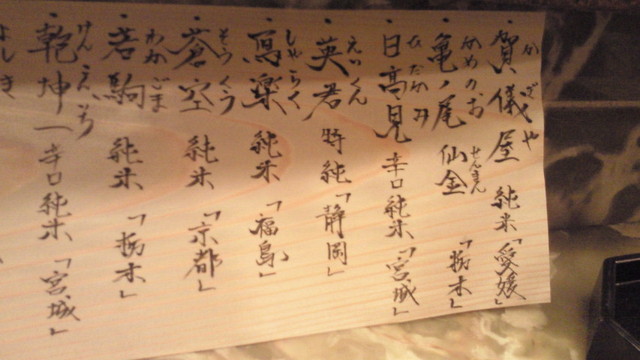 ・賀儀屋 純米「愛媛」
かぎや
・亀ノ尾 仙禽 「栃木」
かめのお せんきん
・日高見 辛口純米「宮城」
ひたかみ
・英君 特純「静岡」
えいくん
・寫楽 純米「福島」
しゃらく
・蒼空 純米「京都」
そうくう
・若駒 純米「栃木」
わかごま
・乾坤一 辛口純米「宮城」
けんこんいち
よしき